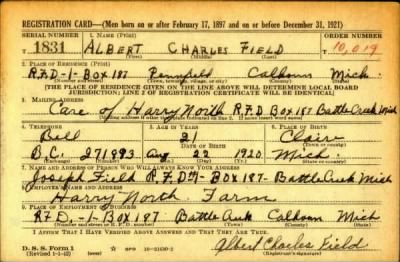 REGISTRATION CARD—(Men born on or after February 17, 1897 and on or before December 31, 1921)
SERIAL NUMBER 1. NAME (Print) ORDER NUMBER
T 1831 ALBERT CHARLES FIELD T 10,019
(First) (Middle) (Last)
2. PLACE OF RESIDENCE (Print)
R.F.D-1-Box 187 Pennfield Calhoun Mich.
(Number and street) (Town, township, village, or city) (County) (State)
[THE PLACE OF RESIDENCE GIVEN ON THE LINE ABOVE WILL DETERMINE LOCAL BOARD
JURISDICTION; LINE 2 OF REGISTRATION CERTIFICATE WILL BE IDENTICAL]
3. MAILING ADDRESS
Care of Harry North R.F.D Box 187 Battle Creek Mich
4. TELEPHONE 5. AGE IN YEARS 6. PLACE OF BIRTH
Bell 21 Claire
DATE OF BIRTH
B.C. 271893 Aug 22 1920 Mich.
(Exchange) (Number) (Mo.) (Day) (Yr.) (State or country)
7. NAME AND ADDRESS OF PERSON WHO WILL ALWAYS KNOW YOUR ADDRESS
Joseph Field R.F.D Box 187 Battle Creek Mich
8. EMPLOYER'S NAME AND ADDRESS
Harry North Farm
9. PLACE OF EMPLOYMENT OR BUSINESS
R.F.D.-1-Box 187 Battle Creek Calhoun Mich
(Number and street or R. F. D. number) (Town) (County) (State)
I AFFIRM THAT I HAVE VERIFIED ABOVE ANSWERS AND THAT THEY ARE TRUE.
D. S. S. Form 1
(Revised 1-1-42) GPO 16—21630-2
Albert Charles Field
(Registrant's signature)